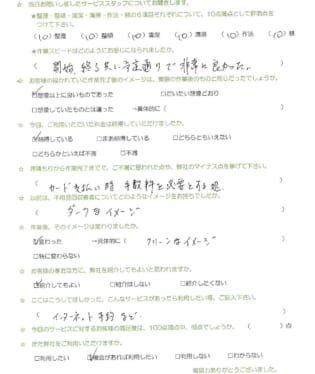 ☆ 当日お伺いしましたサービススタッフについてお聞きします。
★整理・整頓・清潔・清掃・作法・躾の6項目それぞれについて、10点満点として評価点を
つけて下さい。
(10)整理 (10)整頓 (10)清潔 (10)清掃 (10)作法 (10)躾
★作業スピードはどのようにお感じになられましたか。
( 開始、終了共に予定通りで非常に良かった。 )
☆ お客様の描かれていた作業完了後のイメージは、実際の作業後のものと同じだったでしょうか。
☑想像以上に良いものであった □だいたい想像どおり
□想像していたものとは違った →具体的に( )
☆ 今回、ご利用いただいた料金は納得していただけましたか。
☑納得している □まあ納得している □どちらともいえない
□どちらかといえば不満 □不満
☆ 見積もりから作業完了までで、ご不便に思われた点や、弊社のマイナス点を挙げて下さい。
( カード支払い時 手数料を必要とする点 )
☆ 以前は、不用品回収業者についてどのようなイメージをお持ちでしたか。
( ダークなイメージ )
☆ 作業後、そのイメージは変わりましたか。
☑変わった →具体的に( クリーンなイメージ )
□特に変わらない
☆ お客様の身近な方に、弊社を紹介してもよいと思われますか。
☑紹介してもよい □紹介はしない □紹介したくない
☆ ここはこうしてほしかった、こんなサービスがあったら利用したい等、ご記入下さい。
( インターネット予約など )
☆ 今回のサービスに対するお客様の満足度は、100点満点中、何点でしょうか。( )点
☆ また弊社をご利用いただけますか。
□利用したい ☑機会があれば利用したい □利用しない □わからない
ご協力ありがとうございました。